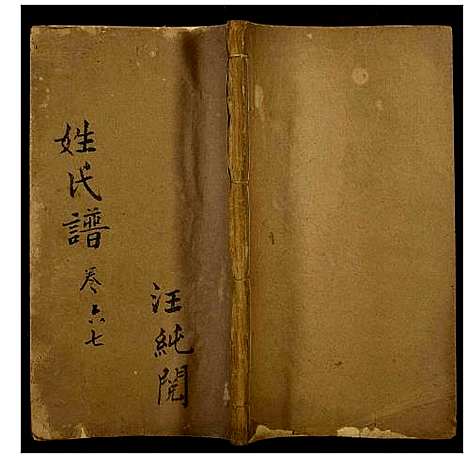 姓氏譜
卷六七
汪純閱